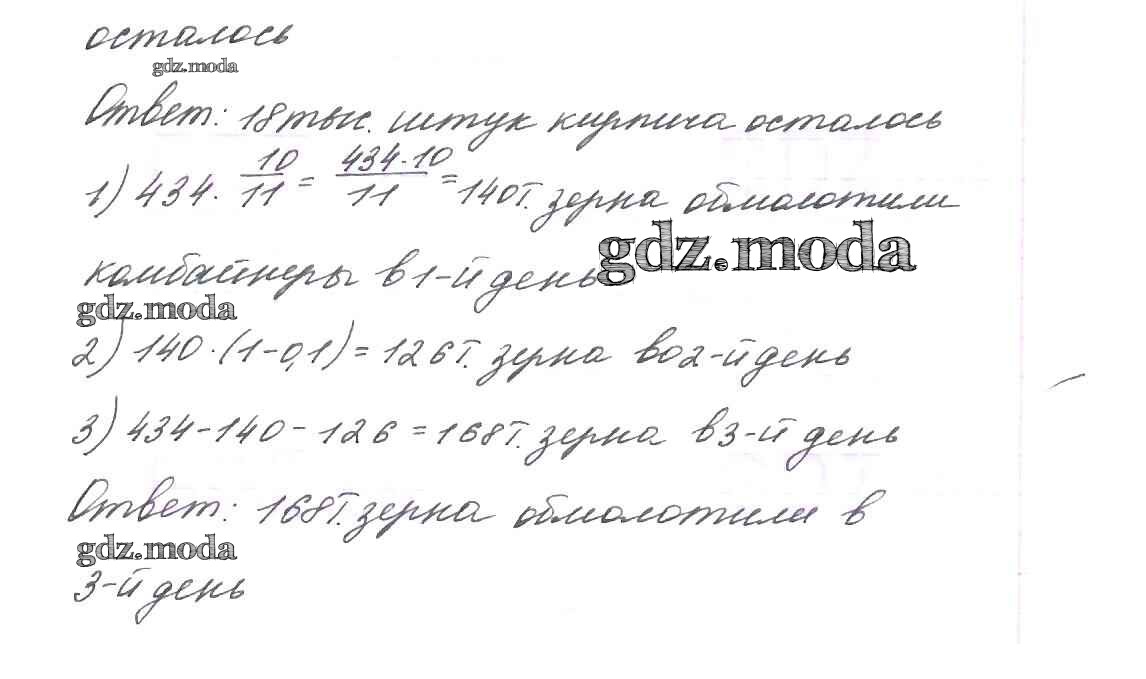 осталось
gdz.moda
Ответ: 18 тыс. штук кирпича осталось
1) 434 · 10/11 = 434·10/11 = 140т. зерна обмолотили
gdz.moda
комбайнеры в 1-й день
gdz.moda
2) 140·(1-0,1) = 126т. зерна во 2-й день
3) 434-140-126 = 168т. зерна в 3-й день
Ответ: 168т. зерна обмолотили в
gdz.moda
3-й день